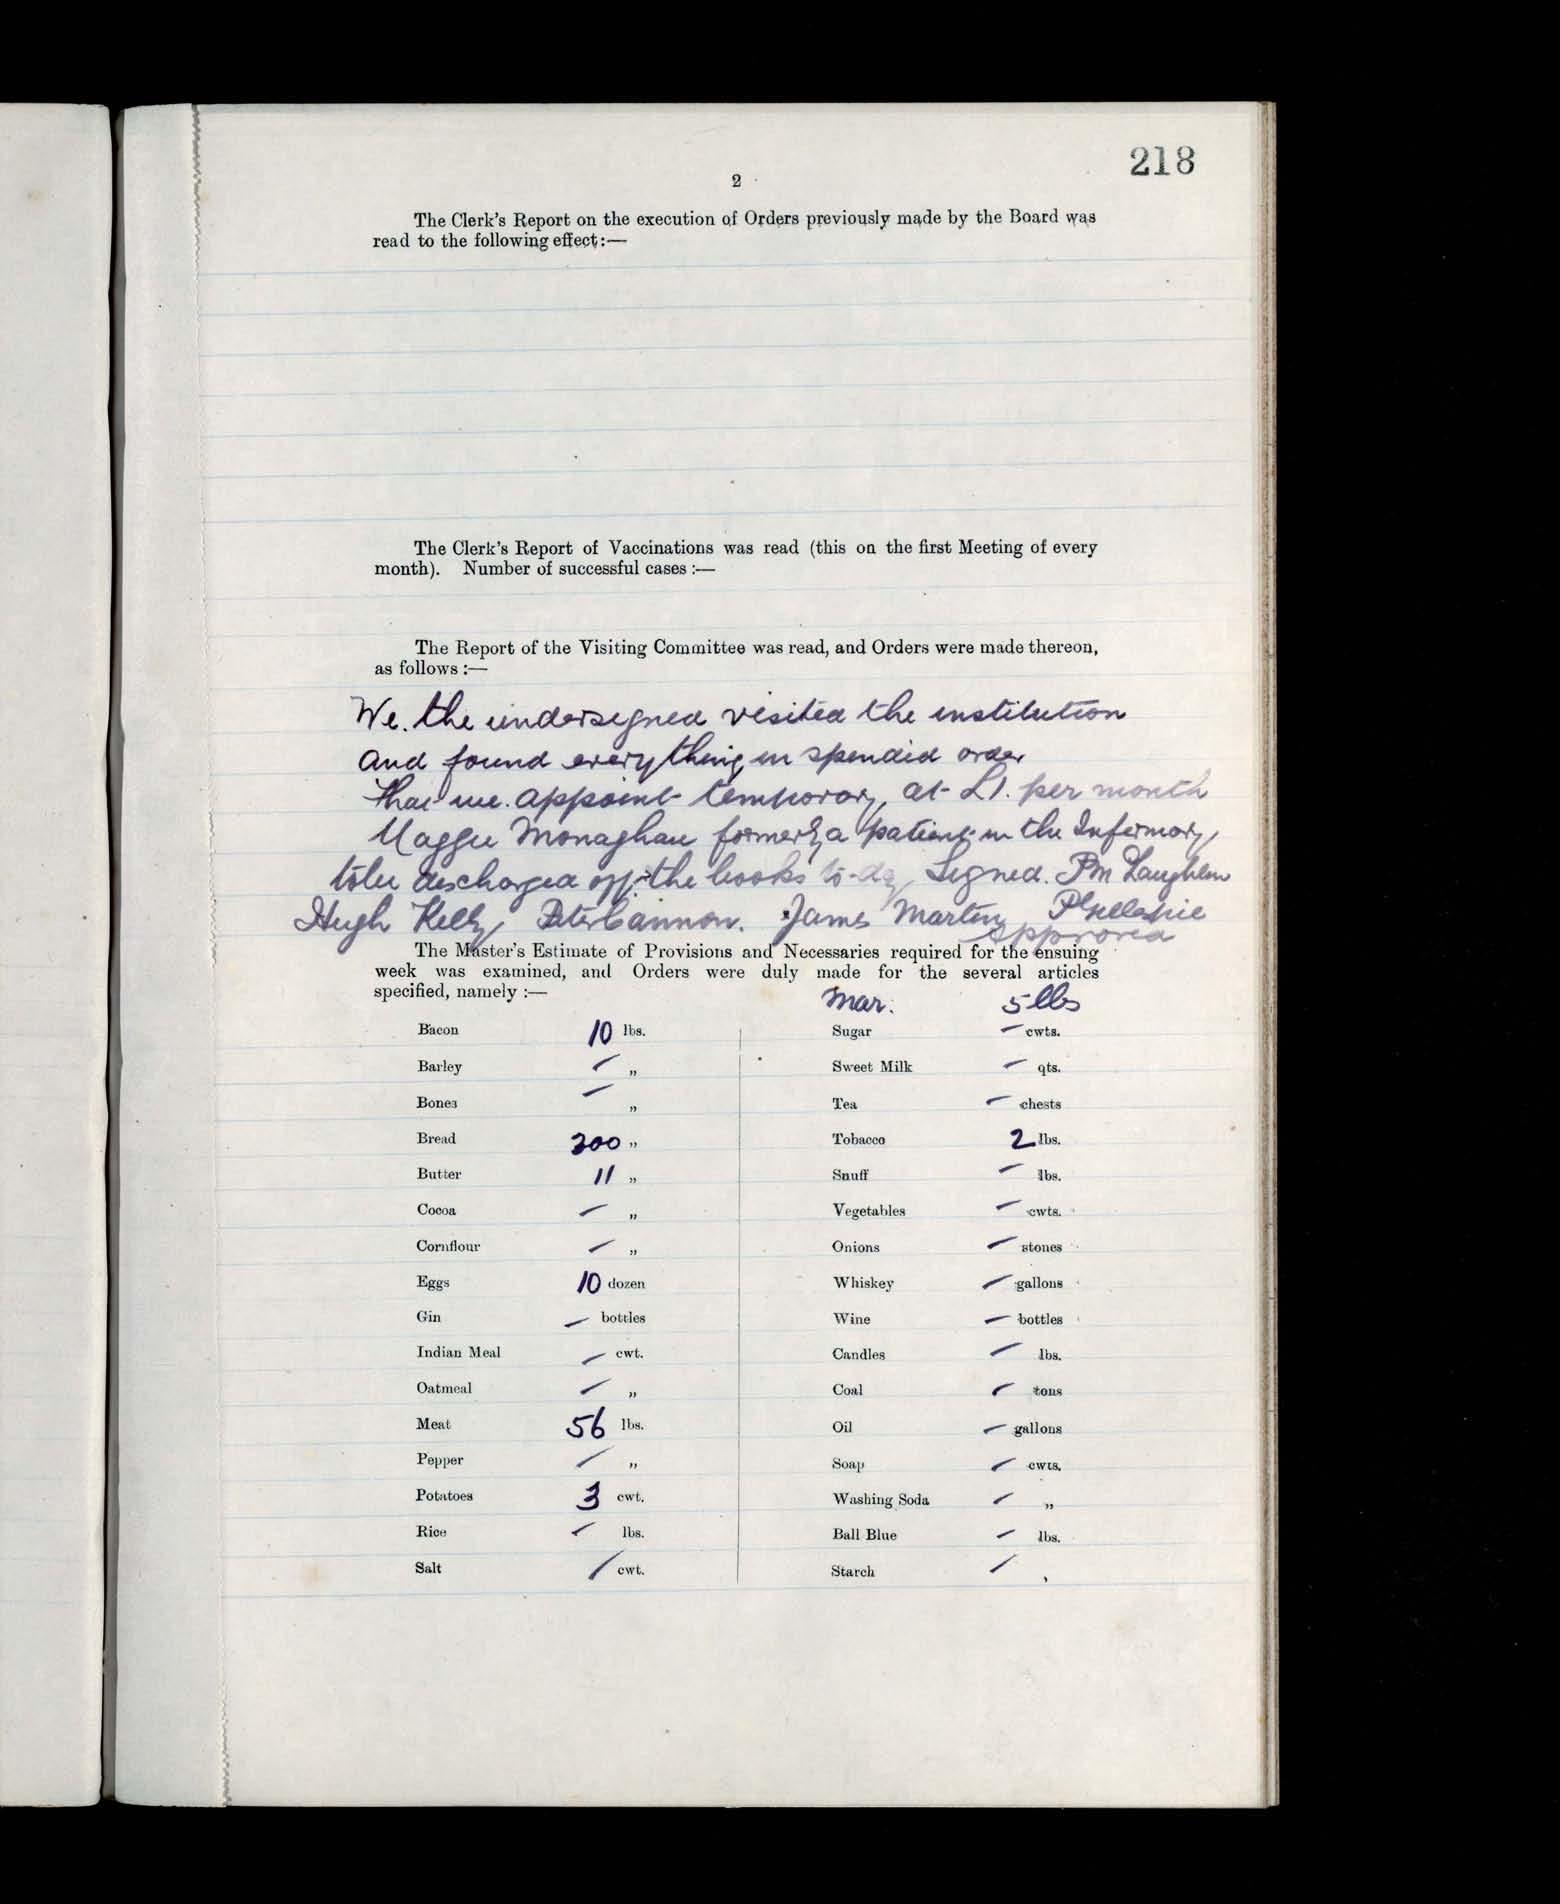 218
2
The Clerk's Report on the execution of Orders previously made by the Board was
read to the following effect:—
The Clerk's Report of Vaccinations was read (this on the first Meeting of every
month). Number of successful cases :—
The Report of the Visiting Committee was read, and Orders were made thereon,
as follows :—
We. the undersigned visited the institution
and found everything in spendid order
that we. appoint temporary at £1. per month
Maggie Monaghan formerly a patient in the Infirmary
to be discharged off the books to-day Signed. P McLaughlin
Hugh Kelly Peter Cannon. James Martin
approved
The Master's Estimate of Provisions and Necessaries required for the ensuing
week was examined, and Orders were duly made for the several articles
specified, namely :—
Mar. 5 lbs
Bacon 10 lbs. Sugar — cwts.
Barley — „ Sweet Milk — qts.
Bones — „ Tea — chests
Bread 300 „ Tobacco 2 lbs.
Butter 11 „ Snuff — lbs.
Cocoa — „ Vegetables — cwts.
Cornflour — „ Onions — stones
Eggs 10 dozen Whiskey — gallons
Gin — bottles Wine — bottles
Indian Meal — cwt. Candles — lbs.
Oatmeal — „ Coal — tons
Meat 56 lbs. Oil — gallons
Pepper — „ Soap — cwts.
Potatoes 3 cwt. Washing Soda — „
Rice — lbs. Ball Blue — lbs.
Salt — cwt. Starch —